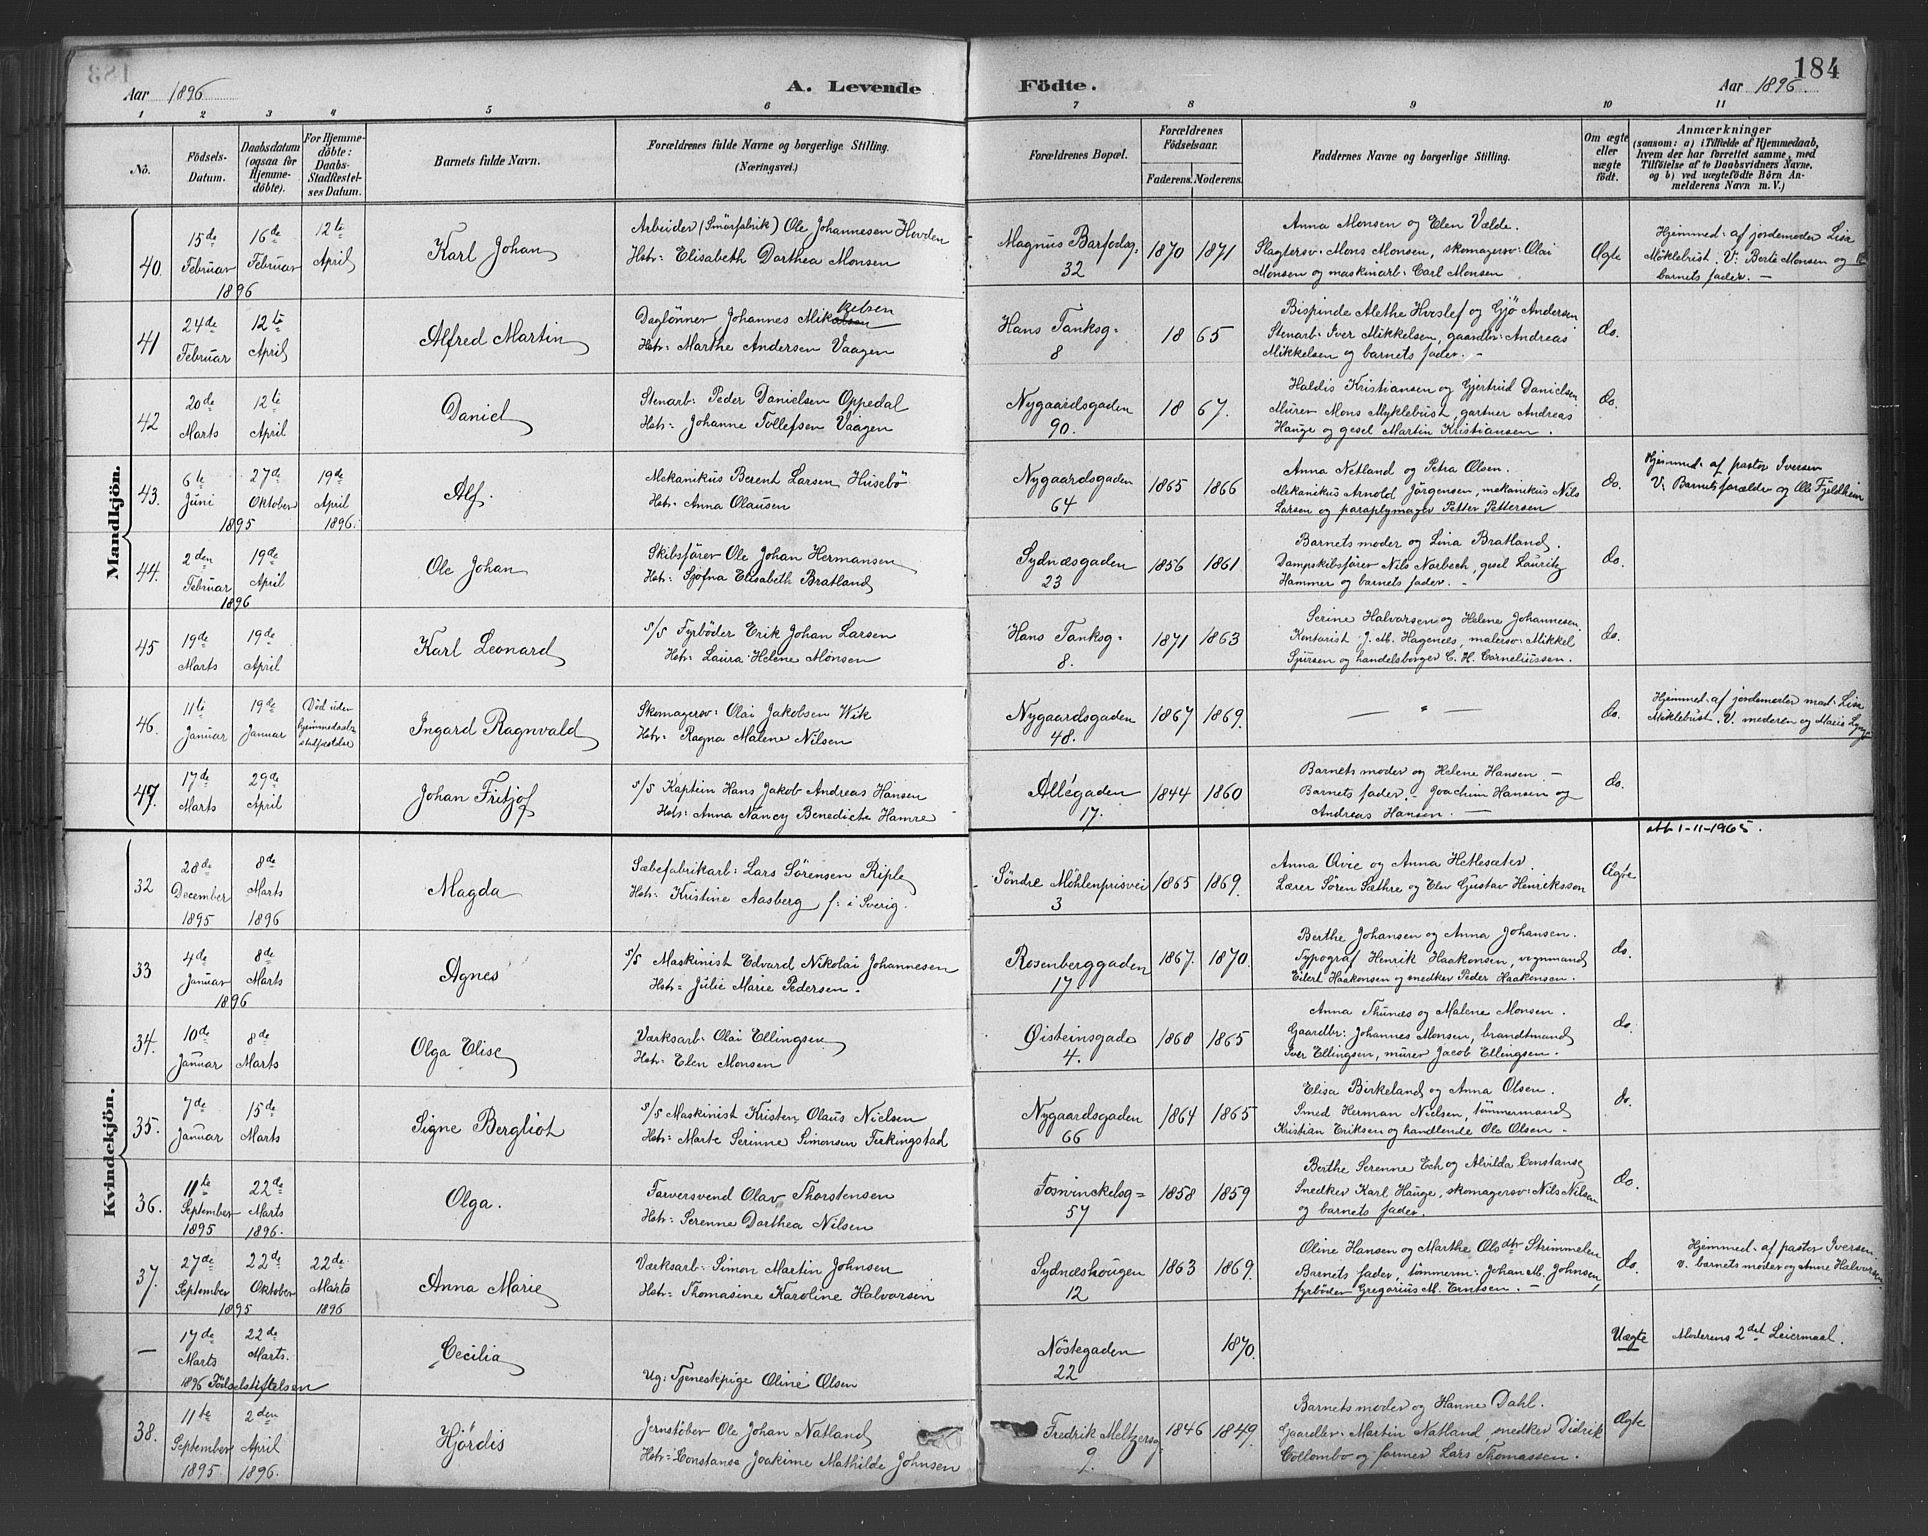 183
184
Aar 1896
A. Levende
Födte.
Aar 1896.
1 2 3 4 5 6 7 8 9 10 11
No.
Födsels-
Datum.
Daabsdatum
(ogsaa for
Hjemme-
döbte).
For Hjemme-
döbte:
Daabs-
Stadfæstel-
ses Datum.
Barnets fulde Navn.
Forældrenes fulde Navne og borgerlige Stilling.
(Næringsvei.)
Forældrenes Bopæl.
Forældrenes
Födselsaar.
Faderens. Moderens.
Faddernes Navne og borgerlige Stilling.
Om ægte
eller
uægte
födt.
Anmærkninger
(saasom: a) i Tilfælde af Hjemmedaab,
hvem der har forrettet samme, med
Tilföielse af to Daabsvidners Navne,
og b) ved uægtefödte Börn An-
melderens Navn m. V.)
Mandkjön.
40.
15de
Februar
1896
16de
Februar
12te
April
Karl Johan
Arbeider (Smörfabrik) Ole Johannesen Hovden
Hstr: Elisabeth Dorthea Monsen
Magnus Barfodsg:
32
1870 1871
Anna Monsen og Elen Vælde.
Slagtersv: Mons Monsen, skomagersv: Olai
Monsen og maskinarb: Carl Monsen
Ægte
Hjemmed: af jordemoder Lisa
Möklebust. V. Berte Monsen og
barnets fader. –
41
24de
Februar
12te
April
Alfred Martin
Daglönner Johannes Mikkelsen
Hstr: Marthe Andersen Vaagen
Hans Tanksg=
8
18 65
Bispinde Alethe Hvoslef og Gjö Andersen
Stenarb: Iver Mikkelsen, gaardbr: Andreas
Mikkelsen og barnets fader. –
do.
42
20de
Marts
12te
April
Daniel
Stenarb: Peder Danielsen Oppedal
Hstr: Johanne Tollefsen Vaagen
Nygaardsgaden
90.
18 67.
Haldis Kristiansen og Gjertrud Danielsen
Murer Mons Myklebust, gartner Andreas
Hauge og gesel Martin Kristiansen.
do.
43.
6te
Juni
1895
27de
Oktober
19de
April
1896.
Alf.
Mekanikus Berent Larsen Husebö
Hst: Anna Olausen
Nygaardsgaden
64
1865 1866
Anna Netland og Petra Olsen.
Mekanikus Arnold Jörgensen, mekanikus Nils
Larsen og paraplymager Petter Pettersen
do.
Hjemmed: af pastor Iversen
V. Barnets forældre og Olle Fjeldheim
44.
2den
Februar
1896
19de
April
Ole Johan
Skibsförer Ole Johan Hermansen
Hst: Sjöfna Elisabeth Bratland
Sydnæsgaden
23
1856 1861
Barnets moder og Lina Bratland.
Dampskibsförer Nils Norbech, gesel Lauritz
Hammer og barnets fader. –
do.
45
19de
Marts
19de
April
Karl Leonard
S/S Fyrböder Erik Johan Larsen
Hstr: Laura Helene Monsen
Hans Tanksg=
8.
1871 1863
Serine Halvorsen og Helene Johannesen.
Kontorist J. M. Hagenæs, malersv: Mikkel
Sjursen og handelsborger C. H. Corneliussen.
do.
46.
11te
Januar
19de
Januar
Död uden
hjemmedaabs
stadfæstelse
Ingard Ragnvald
Skomagersv: Olai Jakobsen Wik
Hst: Ragna Malene Nilsen
Nygaardsgaden
48.
1867 1869.
— " —
do.
Hjemmed: af jordemoder mad: Lisa
Möklebust. V. moderen og Maris
47.
17de
Marts
29de
April
Johan Fritjof
S/S Kaptein Hans Jakob Andreas Hansen
Hst: Anna Nancy Benedicte Hamre
Allégaden
17.
1844 1860
Barnets moder og Helene Hansen. –
Barnets fader. – Joachim Hansen og
Andreas Hansen. –
do.
1-11-1965.
Kvindekjön.
32
28de
December
1895
8de
Marts
1896
Magda
Sæbefabrikarb: Lars Sörensen Riple
Hst: Kristine Aasberg f: i Sverig.
Söndre Möhlenprisvei
3
1865 1869.
Anna Qvie og Anna Hetlesæter.
Lærer Sören Sæthre og Elev Gustav Henriksson
Ægte
33
4de
Januar
1896
8de
Marts
Agnes
S/S Maskinist Edvard Nikolai Johannesen
Hst: Julie Marie Pedersen.
Rosenberggaden
17
1867. 1870.
Berthe Johansen og Anna Johansen.
Typograf Henrik Haakonsen, vognmand
Eilert Haakonsen og snedker Peder Haakonsen.
do.
34.
10de
Januar
8de
Marts
Olga Elise
Værksarb: Olai Ellingsen
Hst: Elen Monsen
Øisteinsgade
4.
1868 1865
Anna Thunæs og Malene Monsen.
Gaardbr: Johannes Monsen, brandtmand
Iver Ellingsen, murer Jacob Ellingsen.
do.
35.
7de
Januar
15de
Marts
Signe Bergliot
S/S Maskinist Kristen Olaus Nielsen
Hst: Marte Serinne Simonsen Ferkingstad
Nygaardsgaden
66
1864 1865
Elisa Birkeland og Anna Olsen.
Smed Herman Nielsen, tömmermand
Kristian Eriksen og handlende Ole Olsen –
do.
36.
11te
September
1895
22de
Marts
1896.
Olga.
Farversvend Olav Thorstensen
Hst: Serenne Dorthea Nilsen
Fosvinckelsg=
57
1858 1859
Berthe Serenne Ech og Alvilda Constanse
Snedker Karl Hauge, skomagersv: Nils Nilsen
og barnets fader.
do.
37.
27de
September
1895
22de
Oktober
22de
Marts
1896
Anna Marie
Værksarb: Simon Martin Johnsen
Hst: Thomasine Karoline Halvorsen
Sydnæshougen
12
1863 1869.
Oline Hansen og Marthe Olsdtr Strimmelen
Barnets fader, tömmerm: Johan M. Johnsen,
fyrböder Gregorius M. Erntsen. –
do.
Hjemmed: af pastor Iversen.
V. barnets moder og Anne Halvorsen
–
17de
Marts
1896 Födselsstiftelsen
22de
Marts.
Cecilia
Ug: Tjenestepige Oline Olsen
Nöstegaden
22
1870.
Uægte
Moderens 2det Leiermaal.
38.
11te
September
1895
2den
April
1896.
Hjördis
Jernstöber Ole Johan Natland
Hst: Constanse Joakime Mathilde Johnsen
Fredrik Meltzersg
9.
1846 1849.
Barnets moder og Hanne Dahl.
Gaardbr: Martin Natland, snedker Didrik
Collombo og former Lars Thomassen.
Ægte